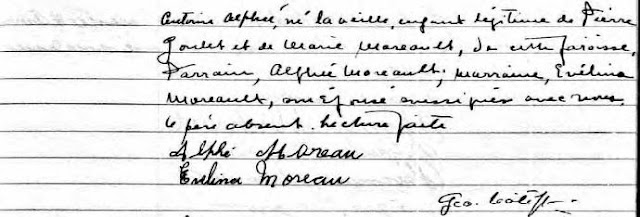 Antoine Alphée, né la veille, enfant légitime de Pierre
Goulet et de Marie Moreault, de cette paroisse,
Parrain, Alphée Moreault, marraine, Evélina
Moreault, son épouse soussignés avec nous
le père absent. Lecture faite
Alphé Moreau
Evelina Moreau
Geo.